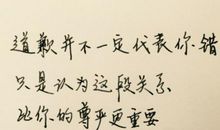 道歉并不一定代表你错
只是认为这段关系
比你的尊严更重要